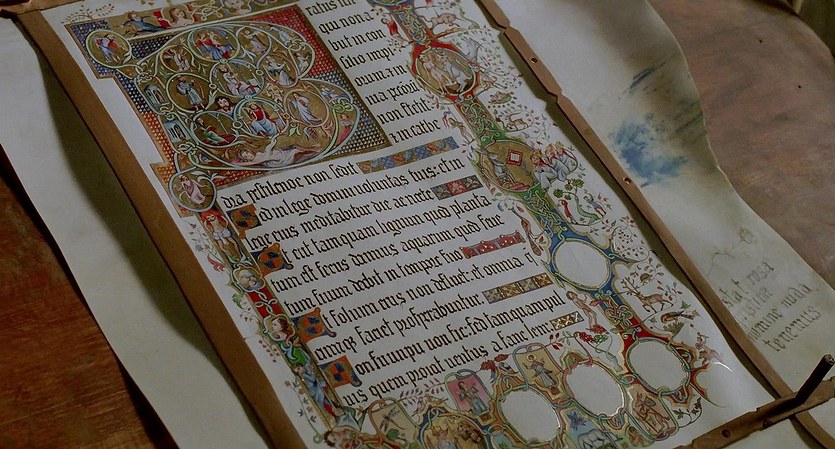 eatus uir
qui non a
biit in con
silio impi
non stetit:
et in cathe
dra pestilencie non sedit
Sed in lege domini uoluntas eius: et in
lege eius meditabitur die ac nocte
Et erit tamquam lignum quod planta
tum est secus decursus aquarum quod fruc
tum suum dabit in tempore suo
Et folium eius non defluet: et omnia
faciet prosperabuntur
non sic: sed tamquam pul
uis quem proicit uentus a facie terre
Stat rosa
pristina
nomine nuda
tenemus